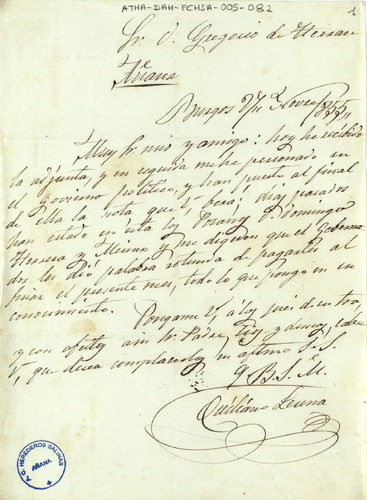 ATHA-DAH-FCHSA-005-082
1
Sr. D. Gregorio de Herran
Añana
Burgos 1855,,
Muy Sr. mio y amigo: hoy he recibido
la adjunta, y en seguida me he personado en
el Govierno politico, y han puesto al final
de ella la nota que V. berá; dias pasados
han estado en esta los Domingo
Herrera y y me digeron que el Goberna
dor les dió palabra rotunda de pagarles al
finar el presente mes, todo lo que pongo en su
conocimiento.
Pongame V. á los pies de su
y con aftos a mi Sr. Padre, Tios y demas,
V. que desea complacerle su S. S.
Q. B. S. M.
T.C. HEREDEROS SALINAS
AÑANA